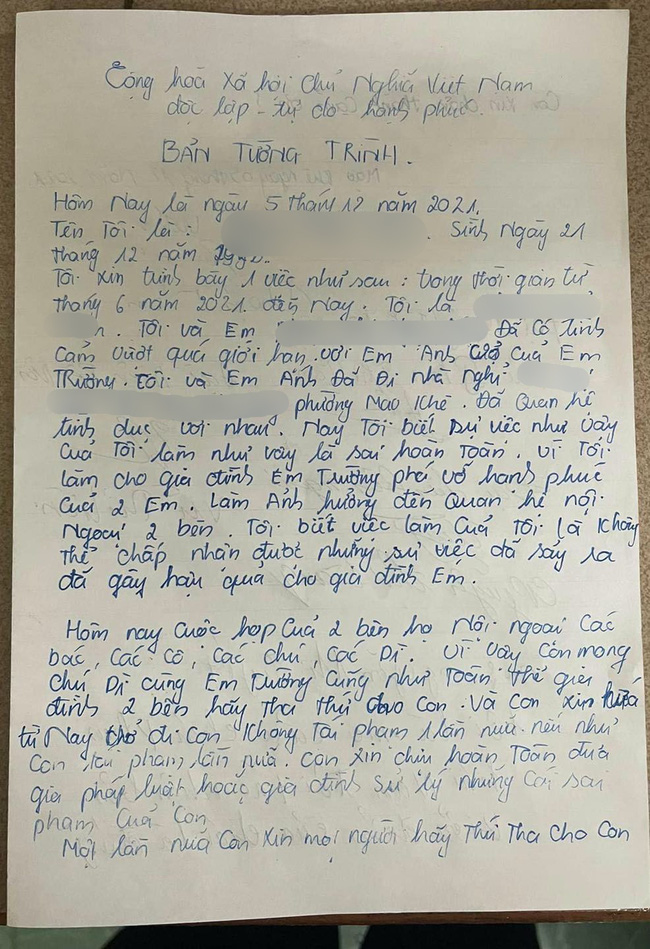 Cộng hoà Xã hội Chủ Nghĩa Việt Nam
độc lập - tự do hạnh phúc.
BẢN TƯỜNG TRÌNH.
Hôm Nay là ngày 5 tháng 12 năm 2021.
Tên Tôi là : Sinh Ngày 21
tháng 12 năm
Tôi xin trình bày 1 việc như sau : trong thời gian từ
tháng 6 năm 2021. đến Nay. Tôi là
Tôi và Em Đã Có tình
Cảm vượt quá giới hạn với Em Anh Của Em
Trường. Tôi và Em Anh Đã Đi nhà Nghỉ
phường Mạo Khê. Đã Quan hệ
tình dục với nhau. Nay Tôi biết sự việc như vậy
Của Tôi làm như vậy là sai hoàn Toàn. Vì Tôi
làm cho gia đình Em Trường phá vỡ hạnh phúc
Của 2 Em. Làm Ảnh hưởng đến Quan hệ nội
Ngoại 2 bên. Tôi biết việc làm Của Tôi là Không
thể chấp nhận được những sự việc đã sảy ra
đã gây hậu quả cho gia đình Em.
Hôm nay Cuộc họp Của 2 bên họ Nội ngoại Các
bác, Các Cô, Các chú, Các Dì. Vì vậy Con mong
chú Dì cùng Em Trường Cũng như Toàn thể gia
đình 2 bên hãy Tha thứ cho Con. Và Con Xin hứa
từ Nay trở đi Con Không Tái phạm 1 lần nữa. nếu như
Con tái phạm lần nữa. Con xin chịu hoàn Toàn đưa
gia pháp luật hoặc gia đình Sử lý những Cái sai
phạm Của Con
Một lần nữa Con Xin mọi người hãy Thứ Tha cho Con